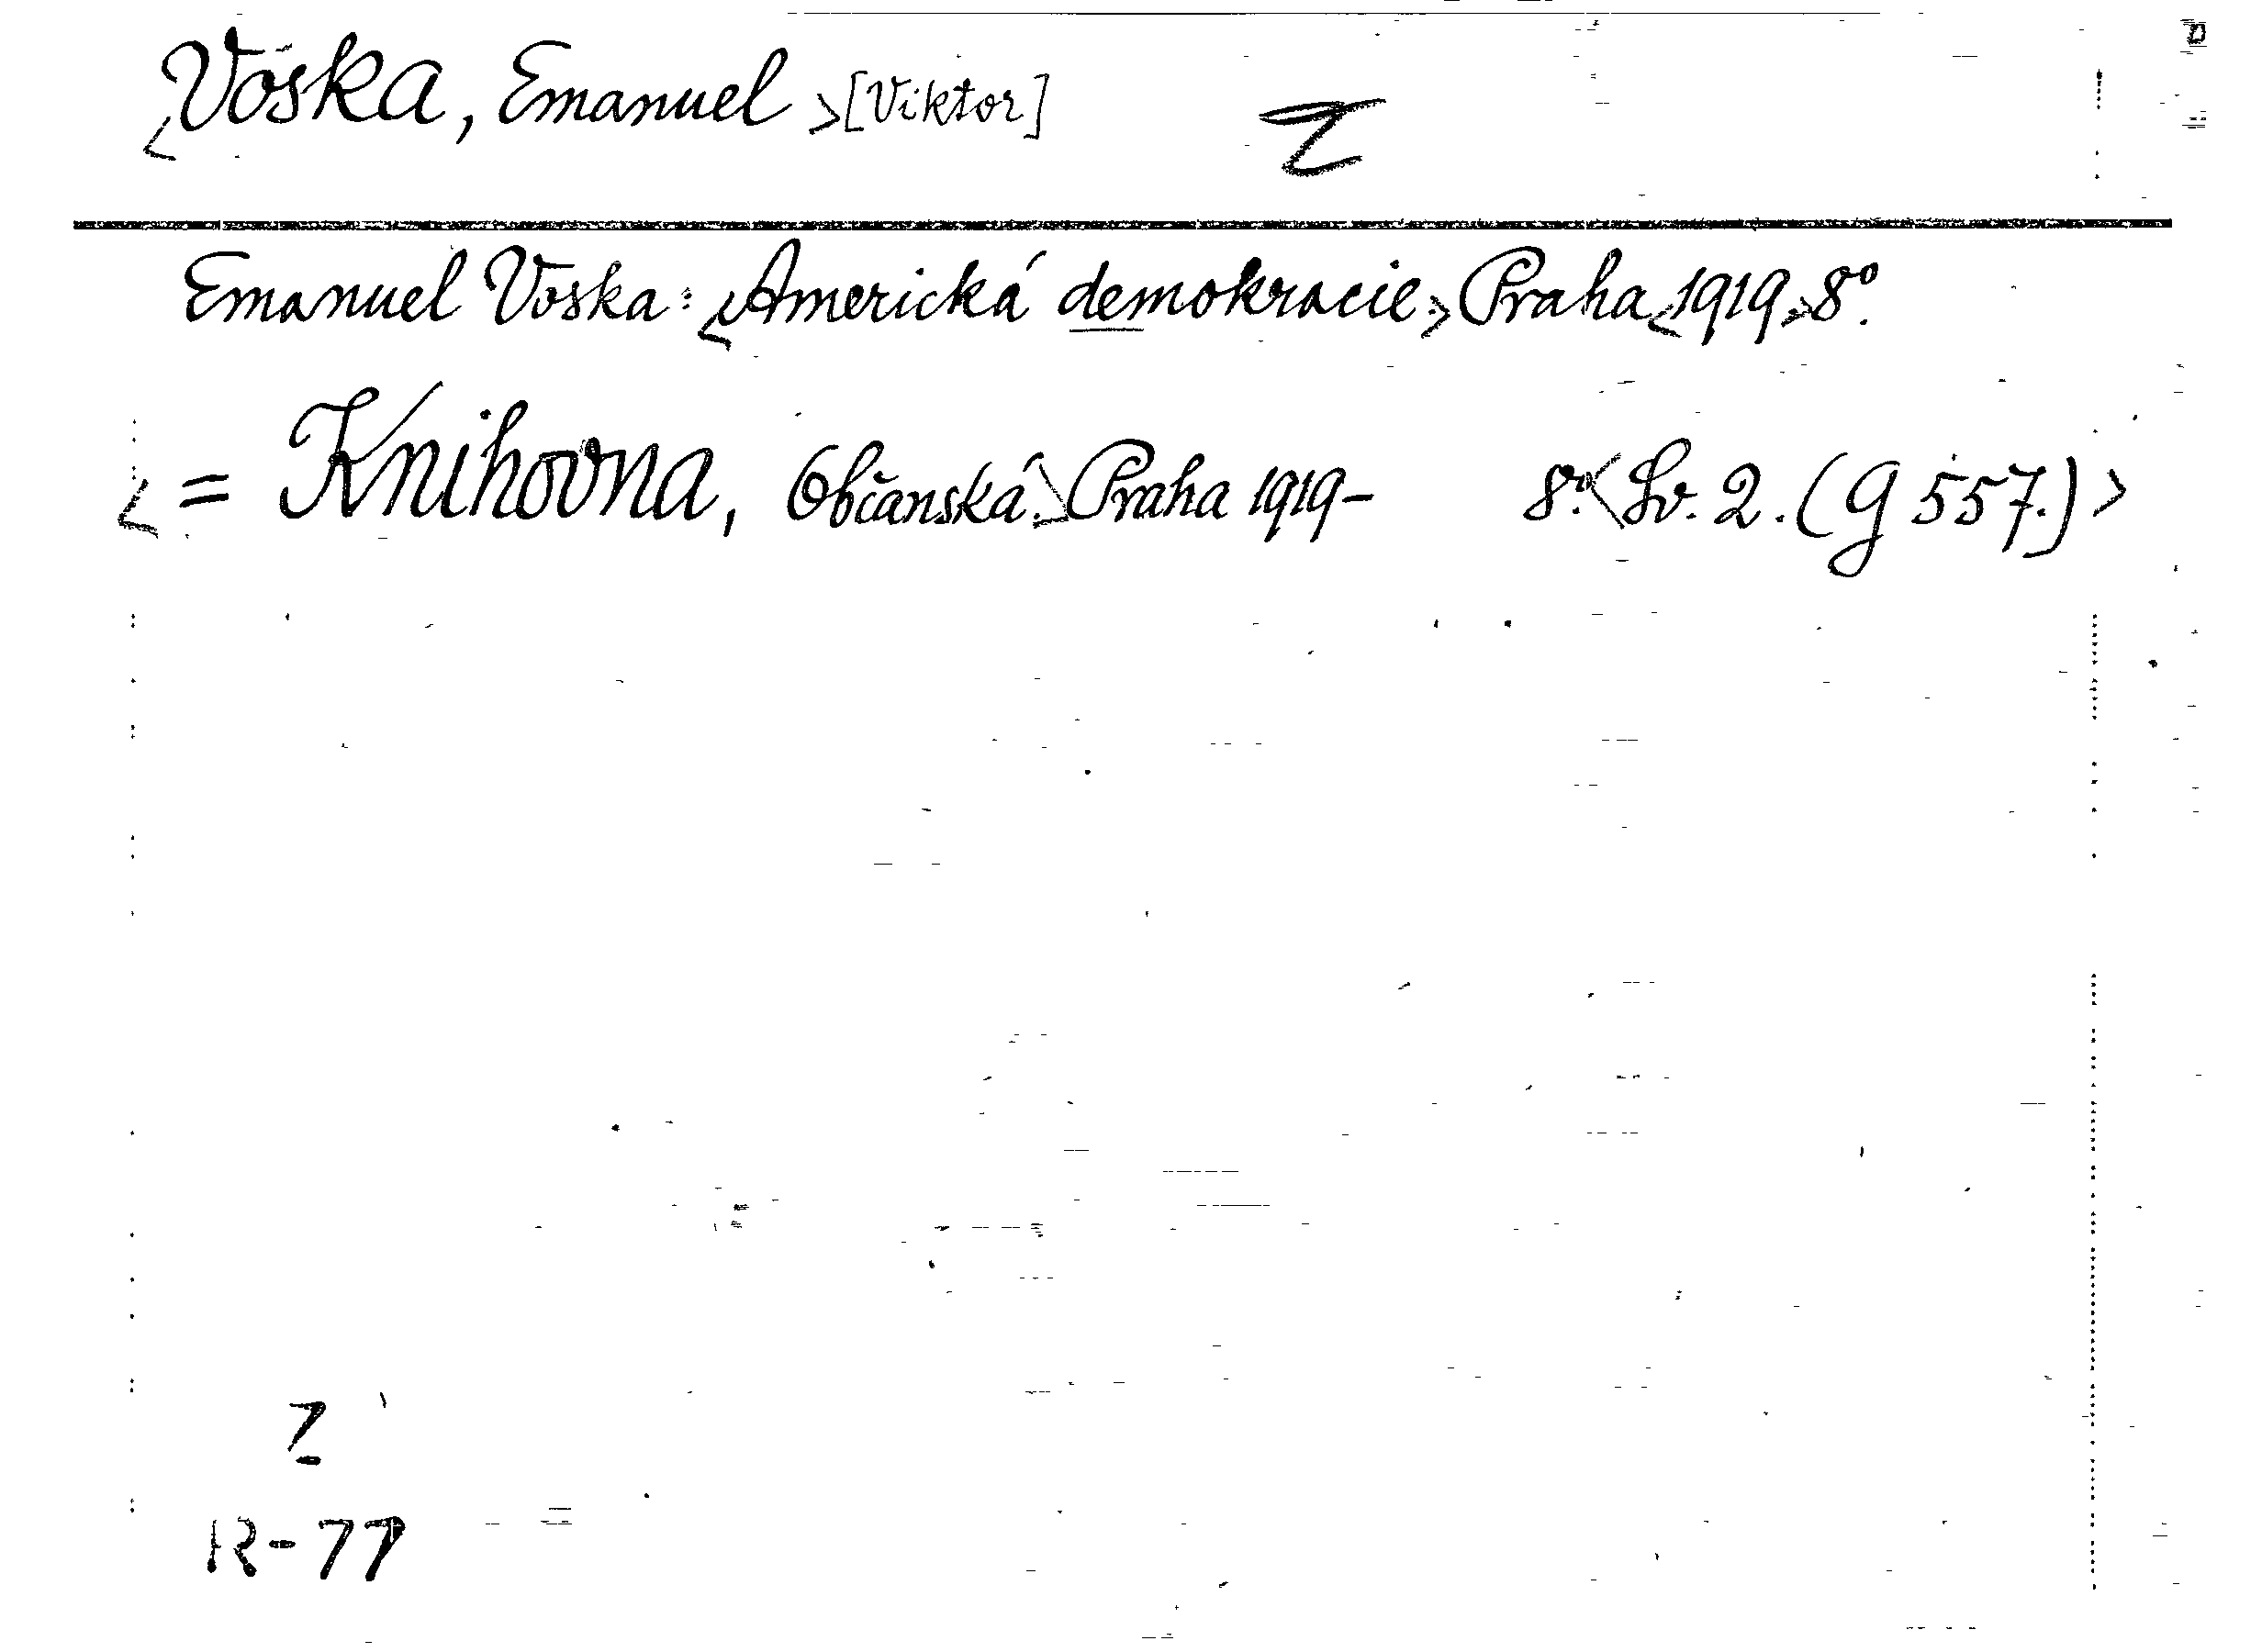 <Voska, Emanuel >[Viktor] Z
Emanuel Voska: <Americká demokracie.> Praha <1919.> 8°.
<= Knihovna, Občanská.> Praha 1919- 8°. <Sv. 2. (G 557.)>
Z
R-77